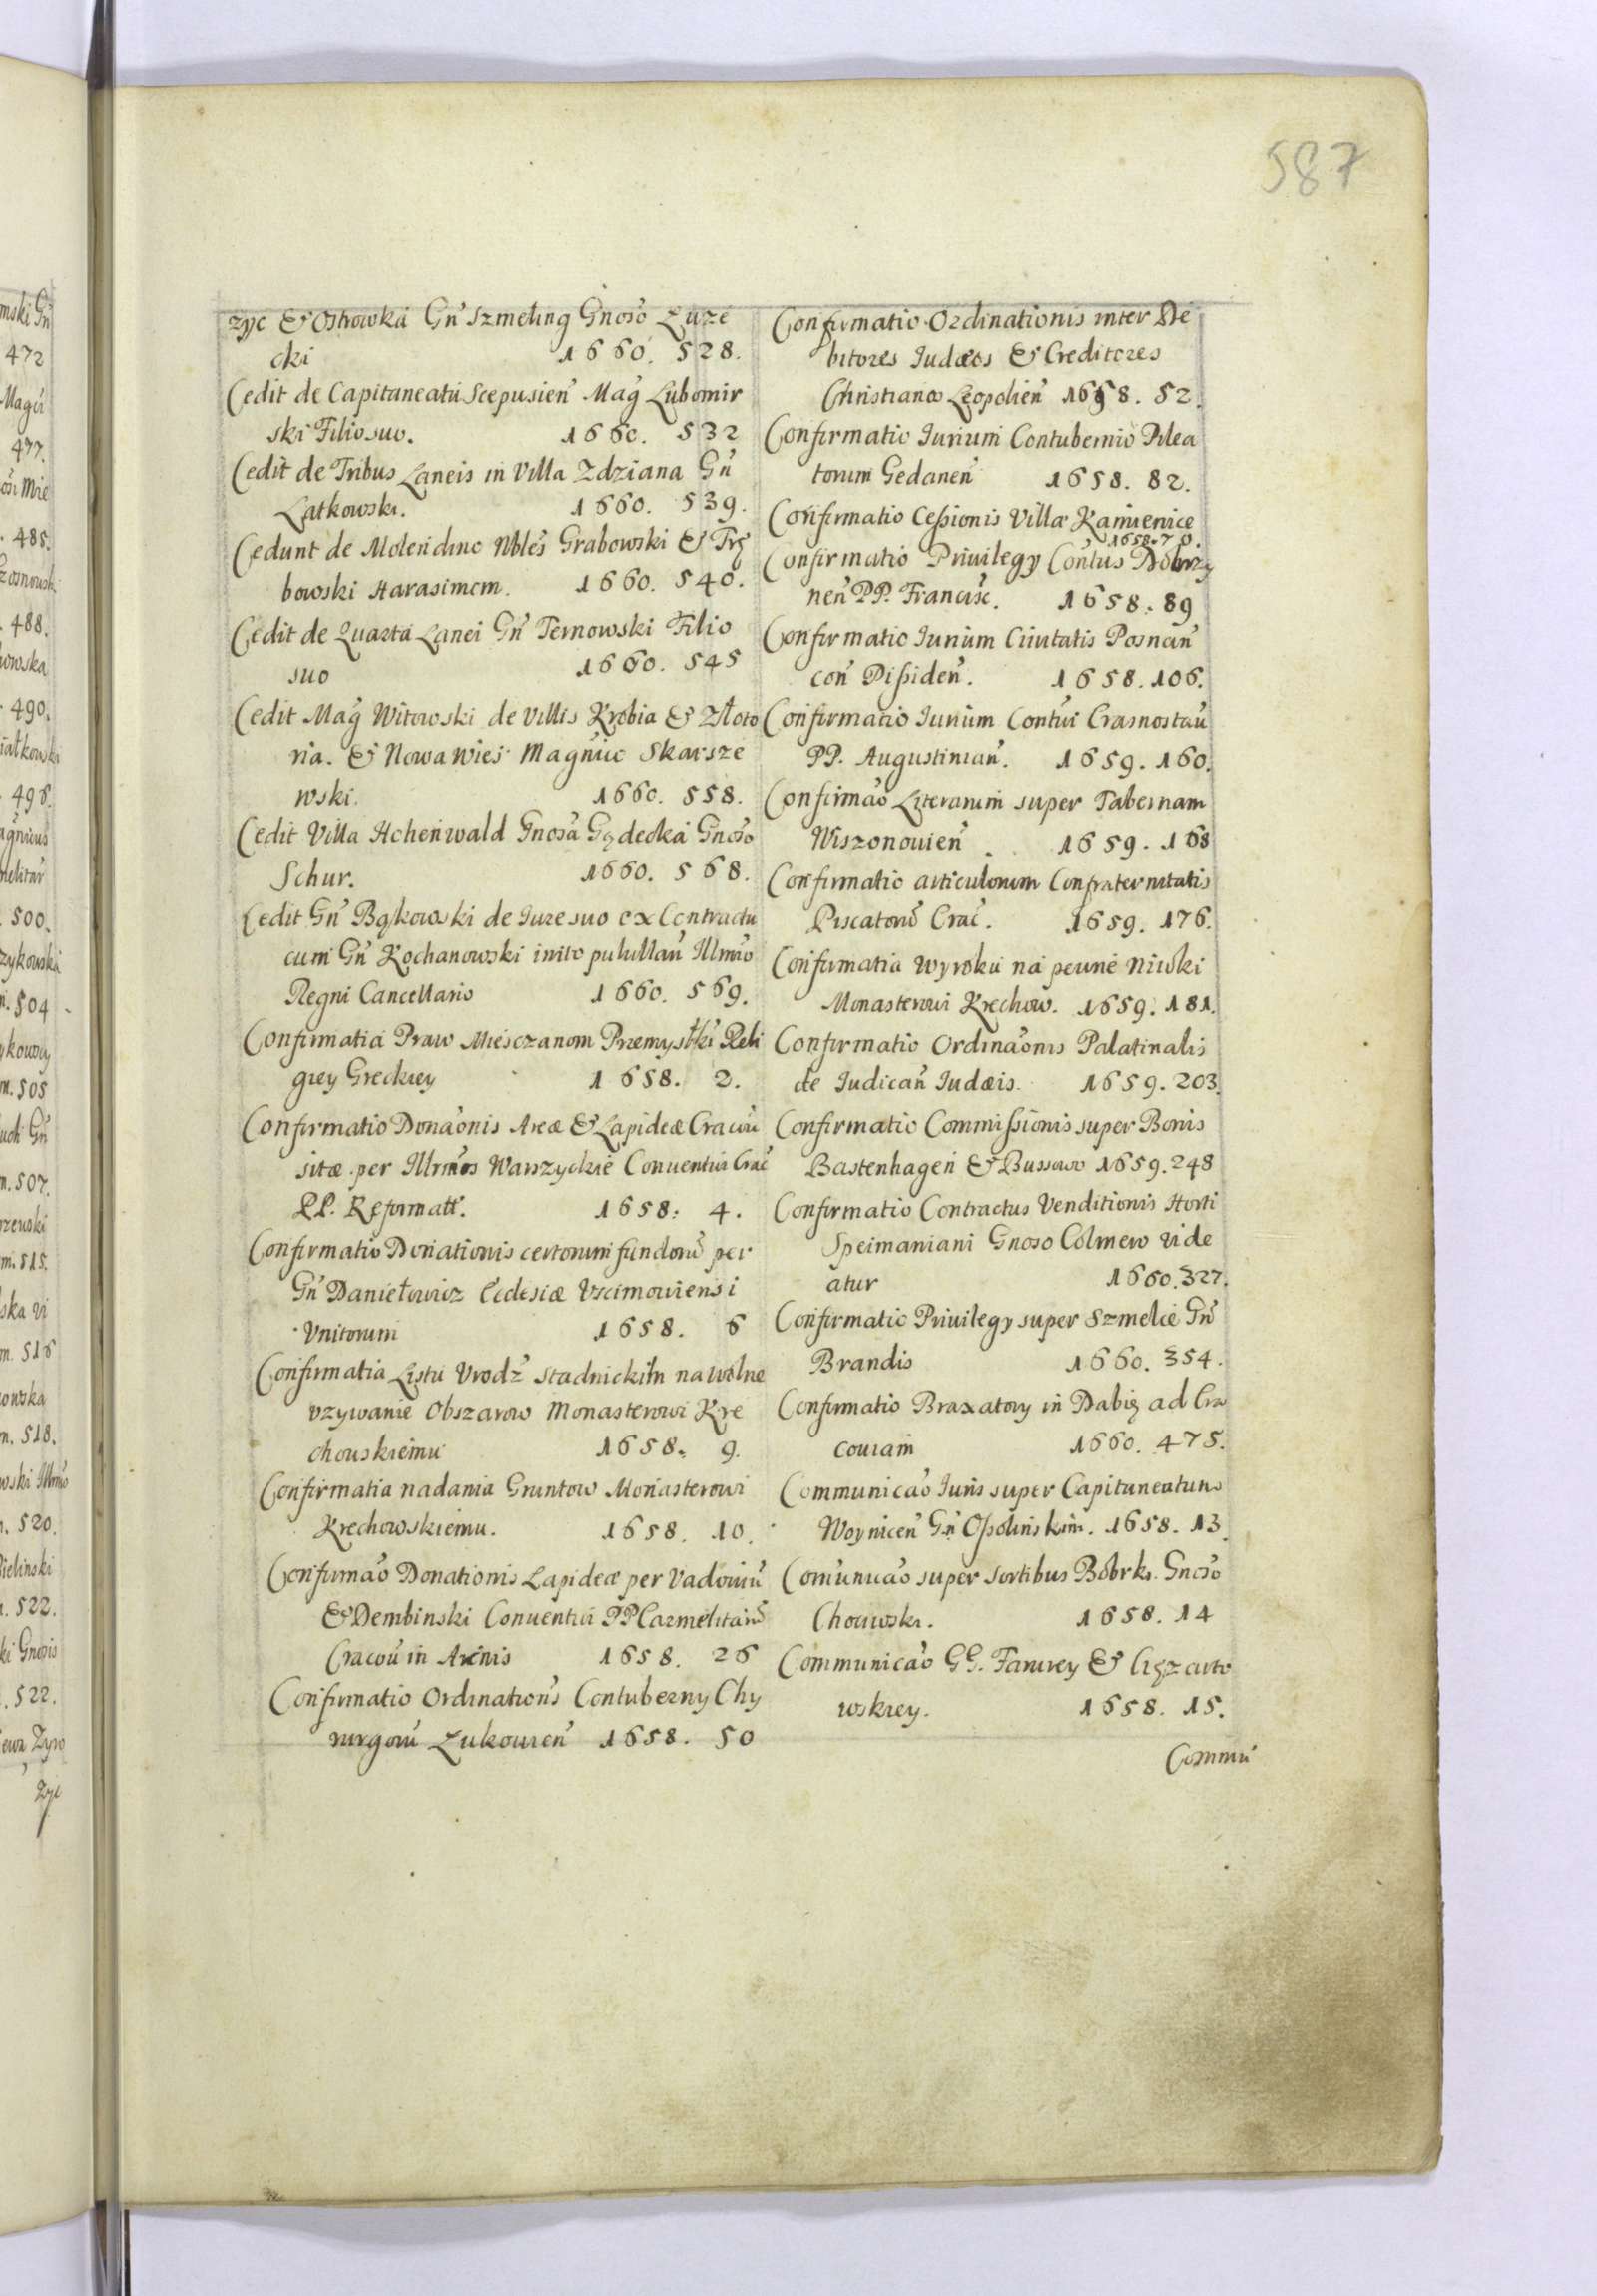 587
zyc & Ostrowka Gn̄ Szmeling Gnoso Łuze
cki 1660. 528.
Cedit de Capitaneatu Scepusien̄ Mag̃ Lubomir
ski Filio suo. 1660. 532
Cedit de Tribus Laneis in Villa Zdziana Gn̄
Latkowski. 1660. 539.
Cedunt de Molendino Nbles Grabowski & Trę
bowski Harasimem. 1660. 540.
Cedit de Quarta Lanei Gn̄ Ternowski Filio
suo 1660. 545
Cedit Mag̃ Witowski de Villis Krobia & Złoto
ria. & Nowa Wies Magnico Skarsze
wski. 1660. 558.
Cedit Villa Hchenwald Gnosa Gędecka Gnoso
Schur. 1660. 568.
Cedit Gn̄ Bąkowski de Iure suo ex Contractu
cum Gn̄ Kochanowski inito pululłan̄ Illmo
Regni Cancellario 1660. 569.
Confirmatia Praw Miesczanom Przemyślski Reli
giey Greckiey 1658. 2.
Confirmatio Donaõnis Areæ & Lapideæ Cracov̄
sitæ per Illrmos Warszyckie Conventui Crac̄
PP. Reformatt. 1658: 4.
Confirmatio Donationis certorum fundorū per
Gn̄ Daniełowicz Ecclesiæ Uscimoviensi
Unitorum 1658. 6
Confirmatia Listu Vrodz̄ Stadnickim na wolne
vzywanie Obszarow Monasterowi Kre
chowskiemu 1658. 9.
Confirmatia nadania Gruntow Monasterowi
Krechowskiemu. 1658. 10.
Confirmaõ Donationis Lapideæ per Vadoviū
& Dembinski Conventui PP Carmelitarū
Cracov̄ in Arenis 1658. 26
Confirmatio Ordinations Contuberny Chy
rurgorū Łukovien̄ 1658. 50
Confirmatio Ordinationis inter De
bitores Iudæos & Creditores
Christianos Leopolien̄ 1658. 52.
Confirmatio Iurium Contubernio Pilea
torum Gedanen̄ 1658. 82.
Confirmatio Ceſsionis Villæ Kamienice
1658. 70.
Confirmatio Privilegy Con̄tus Dobrzy
nen̄ PP. Francisc̄. 1658. 89
Confirmatio Iurium Civitatis Posnan̄
con̄ Diſsiden̄. 1658. 106.
Confirmatio Iurium Contui Crasnostav̄
PP. Augustinian̄. 1659. 160.
Confirmaõ Literarum super Tabernam
Wiszonovien̄ 1659. 168
Confirmatio articulorum Confraternitatis
Piscatorū Crac̄. 1659. 176.
Confirmatia Wyroku na pewne Niwki
Monasterowi Krechow. 1659. 181.
Confirmatio Ordinaõnis Palatinalis
de Iudican̄ Iudæis. 1659. 203.
Confirmatio Commiſsionis super Bonis
Bastenhagen & Bussow 1659. 248
Confirmatio Contractus Venditionis Horti
Speimaniani Gnoso Colmero vide
atur 1660. 327.
Confirmatio Privilegy super Szmelcie Gn̄
Brandis 1660. 354.
Confirmatio Braxatory in Dabię ad Cra
coviam 1660. 475.
Communicaõ Iuris super Capitaneatum
Woynicen̄ Gn̄ Oſsolinskim. 1658. 13.
Comunicaõ super sortibus Bobrki Gnoso
Chouwski. 1658. 14
Communicaõ GG. Farurey & Ciszcuto
wskiey. 1658. 15.
Commū